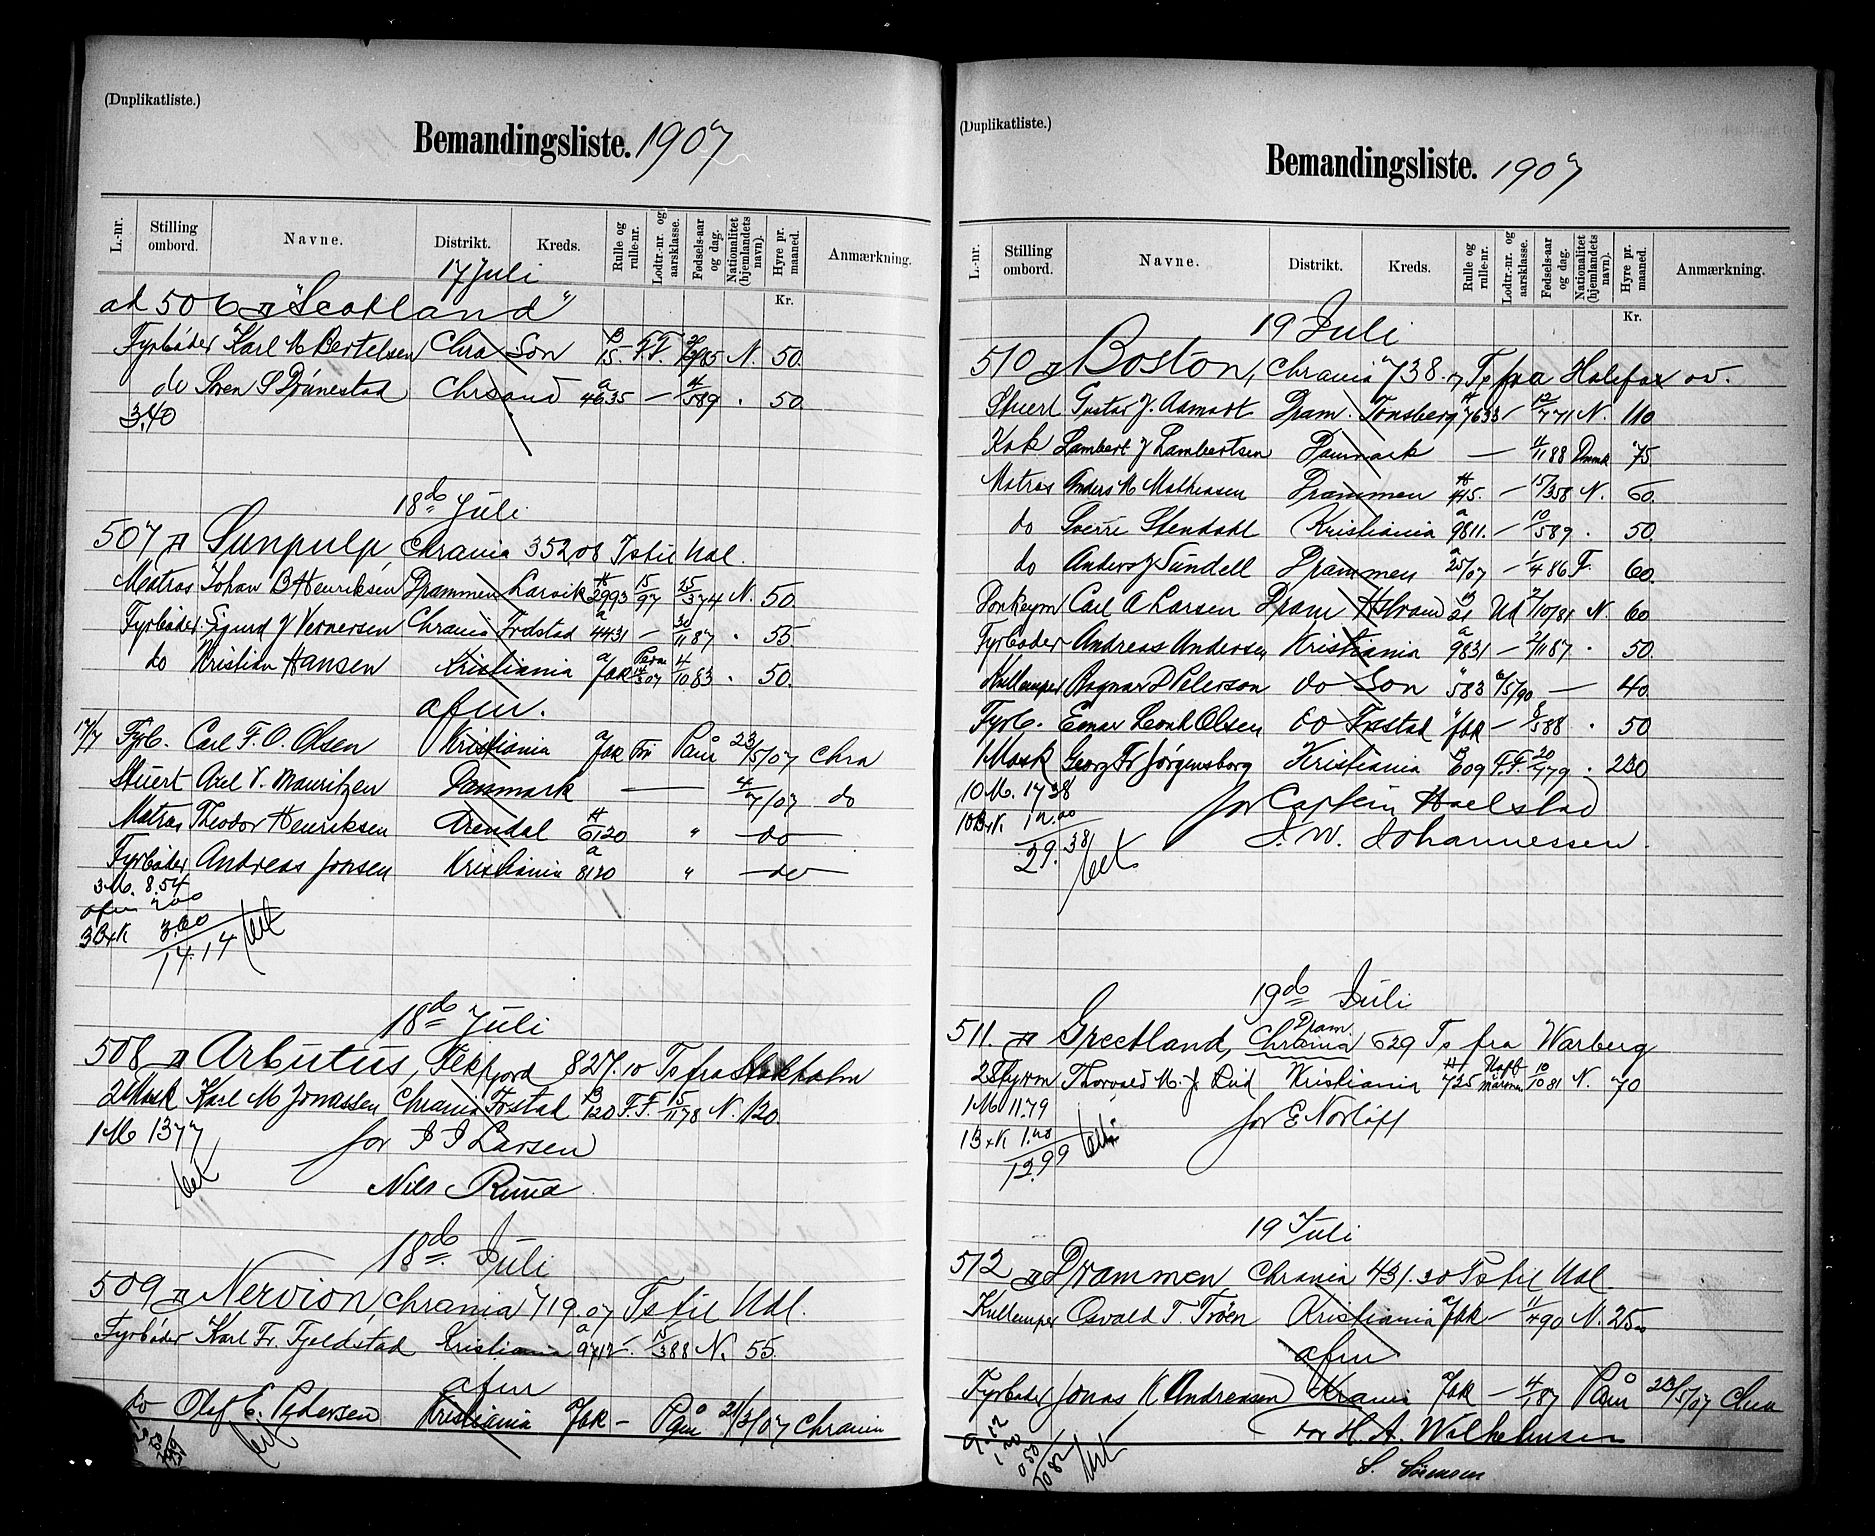 (Duplikatliste.)
Bemandingsliste. 1907
L.-nr. Stilling ombord. Navne. Distrikt. Kreds. Rulle og rulle-nr. Lodtr.-nr. og aarsklasse. Fødsels-aar og dag. Nationalitet (hjemlandets navn). Hyre pr. maaned. Anmærkning.
Kr.
17 Juli
ad 506 "Scotland"
Fyrbøder Karl M Bertelsen Chra Son B 15. F.F. N. 50.
do Søren S Drånestad Chrsand a 4635 — 4/5 89 . 50.
3.40
18de Juli
507 Sunpulp, Chrania 352,08 Ts til Udl.
Matros Johan B Henriksen Drammen Larvik H 2993 15/97 25/3 74 N. 50.
Fyrbøder Sigurd J Vernersen Chrania Frdstad a 4431 — 30/11 87 . 55
do Kristian Hansen Kristiania a fbk 4/10 83 . 50.
afm.
17/7 Fyrb. Carl F. O. Olsen Kristiania a fbk Påm 23/5/07 Chra
Stuert Axel V. Mauritzen Danmark — 4/7/07 do
Matros Theodor Henriksen Arendal H 6120 " do
Fyrbøder Andreas Jonsen Kristiania a 8120 " do
3 M. 8.54
afm 200
3 B+K 3.60
14.14
18de Juli
508 Arbutus, Flekfjord 827.10 Ts fra Stokholm
2 Mask Karl M Jonassen Chrania Frstad B 120 F.F. 15/1 78 N. 120.
1 M 1377 for J J Larsen
Nils Ruud
18de Juli
509 Nervion, Chrania 719.07 Ts til Udl.
Fyrbøder Karl Fr. Fjeldstad Kristiania a 9712 - 15/3 88 N. 55.
afm
do Olaf E. Pedersen Kristiania fbk - Påm 21/3/07 Chrania
(Duplikatliste.)
Bemandingsliste. 1907
L.-nr. Stilling ombord. Navne. Distrikt. Kreds. Rulle og rulle-nr. Lodtr.-nr. og aarsklasse. Fødsels-aar og dag. Nationalitet (hjemlandets navn). Hyre pr. maaned. Anmærkning.
Kr.
19 Juli
510 Boston, Chrania 738. Ts fra Halifax ov.
Stuert Gustav J. Aamodt Dram. Tønsberg H 7633 - 12/7 71 N. 110
Kok Lambert J Lambertsen Danmark — 4/11 88 Dmmk 75
Matros Anders M Mathiesen Drammen H 415. - 15/3 58 N. 60.
do Sverre Stendahl Kristiania a 9811. - 10/5 89 . 50.
do Anders J Sundell Drammen a 25/07 - 1/4 86 F. 60.
Donkeym Carl A Larsen Dram Hlsrand B 21 Ud 2/10/81 N. 60
Fyrbøder Andreas Andersen Kristiania a 9831 - 2/11 87 . 50.
Kullemper Ragnar D Peterson do Son " 583 /5/90 — 40
Fyrb. Einar Leonh Olsen do Frstad " fbk - 8/5 88 . 50
1 Mask Georg Fr Jørgensborg Kristiania B 609 F.F. 20/1 79 . 230
10 M. 17.38 for Captein Haelstad
10 B+K 12.00 J. W. Johannessen.
29.38
19de Juli
511 Greetland, Dram. Chrania 629 Ts fra Warberg
2 Styrm Thorvald M. J. Lind Kristiania H 725 10/10 81 N. 70
1 M 11.79 for E Norløff
1 B+K 1.20
12.99
19 Juli
512 Drammen Chrania 431.30 Ts til Udl.
Kullemper Osvald T. Troen Kristiania fbk - 11/4 90 N. 25.00
afm
Fyrbøder Jonas K Andreasen Krania fbk - 4/1 87 Påm 23/5/07 Chra
for H. A. Wilhelmsen
S. Sørensen